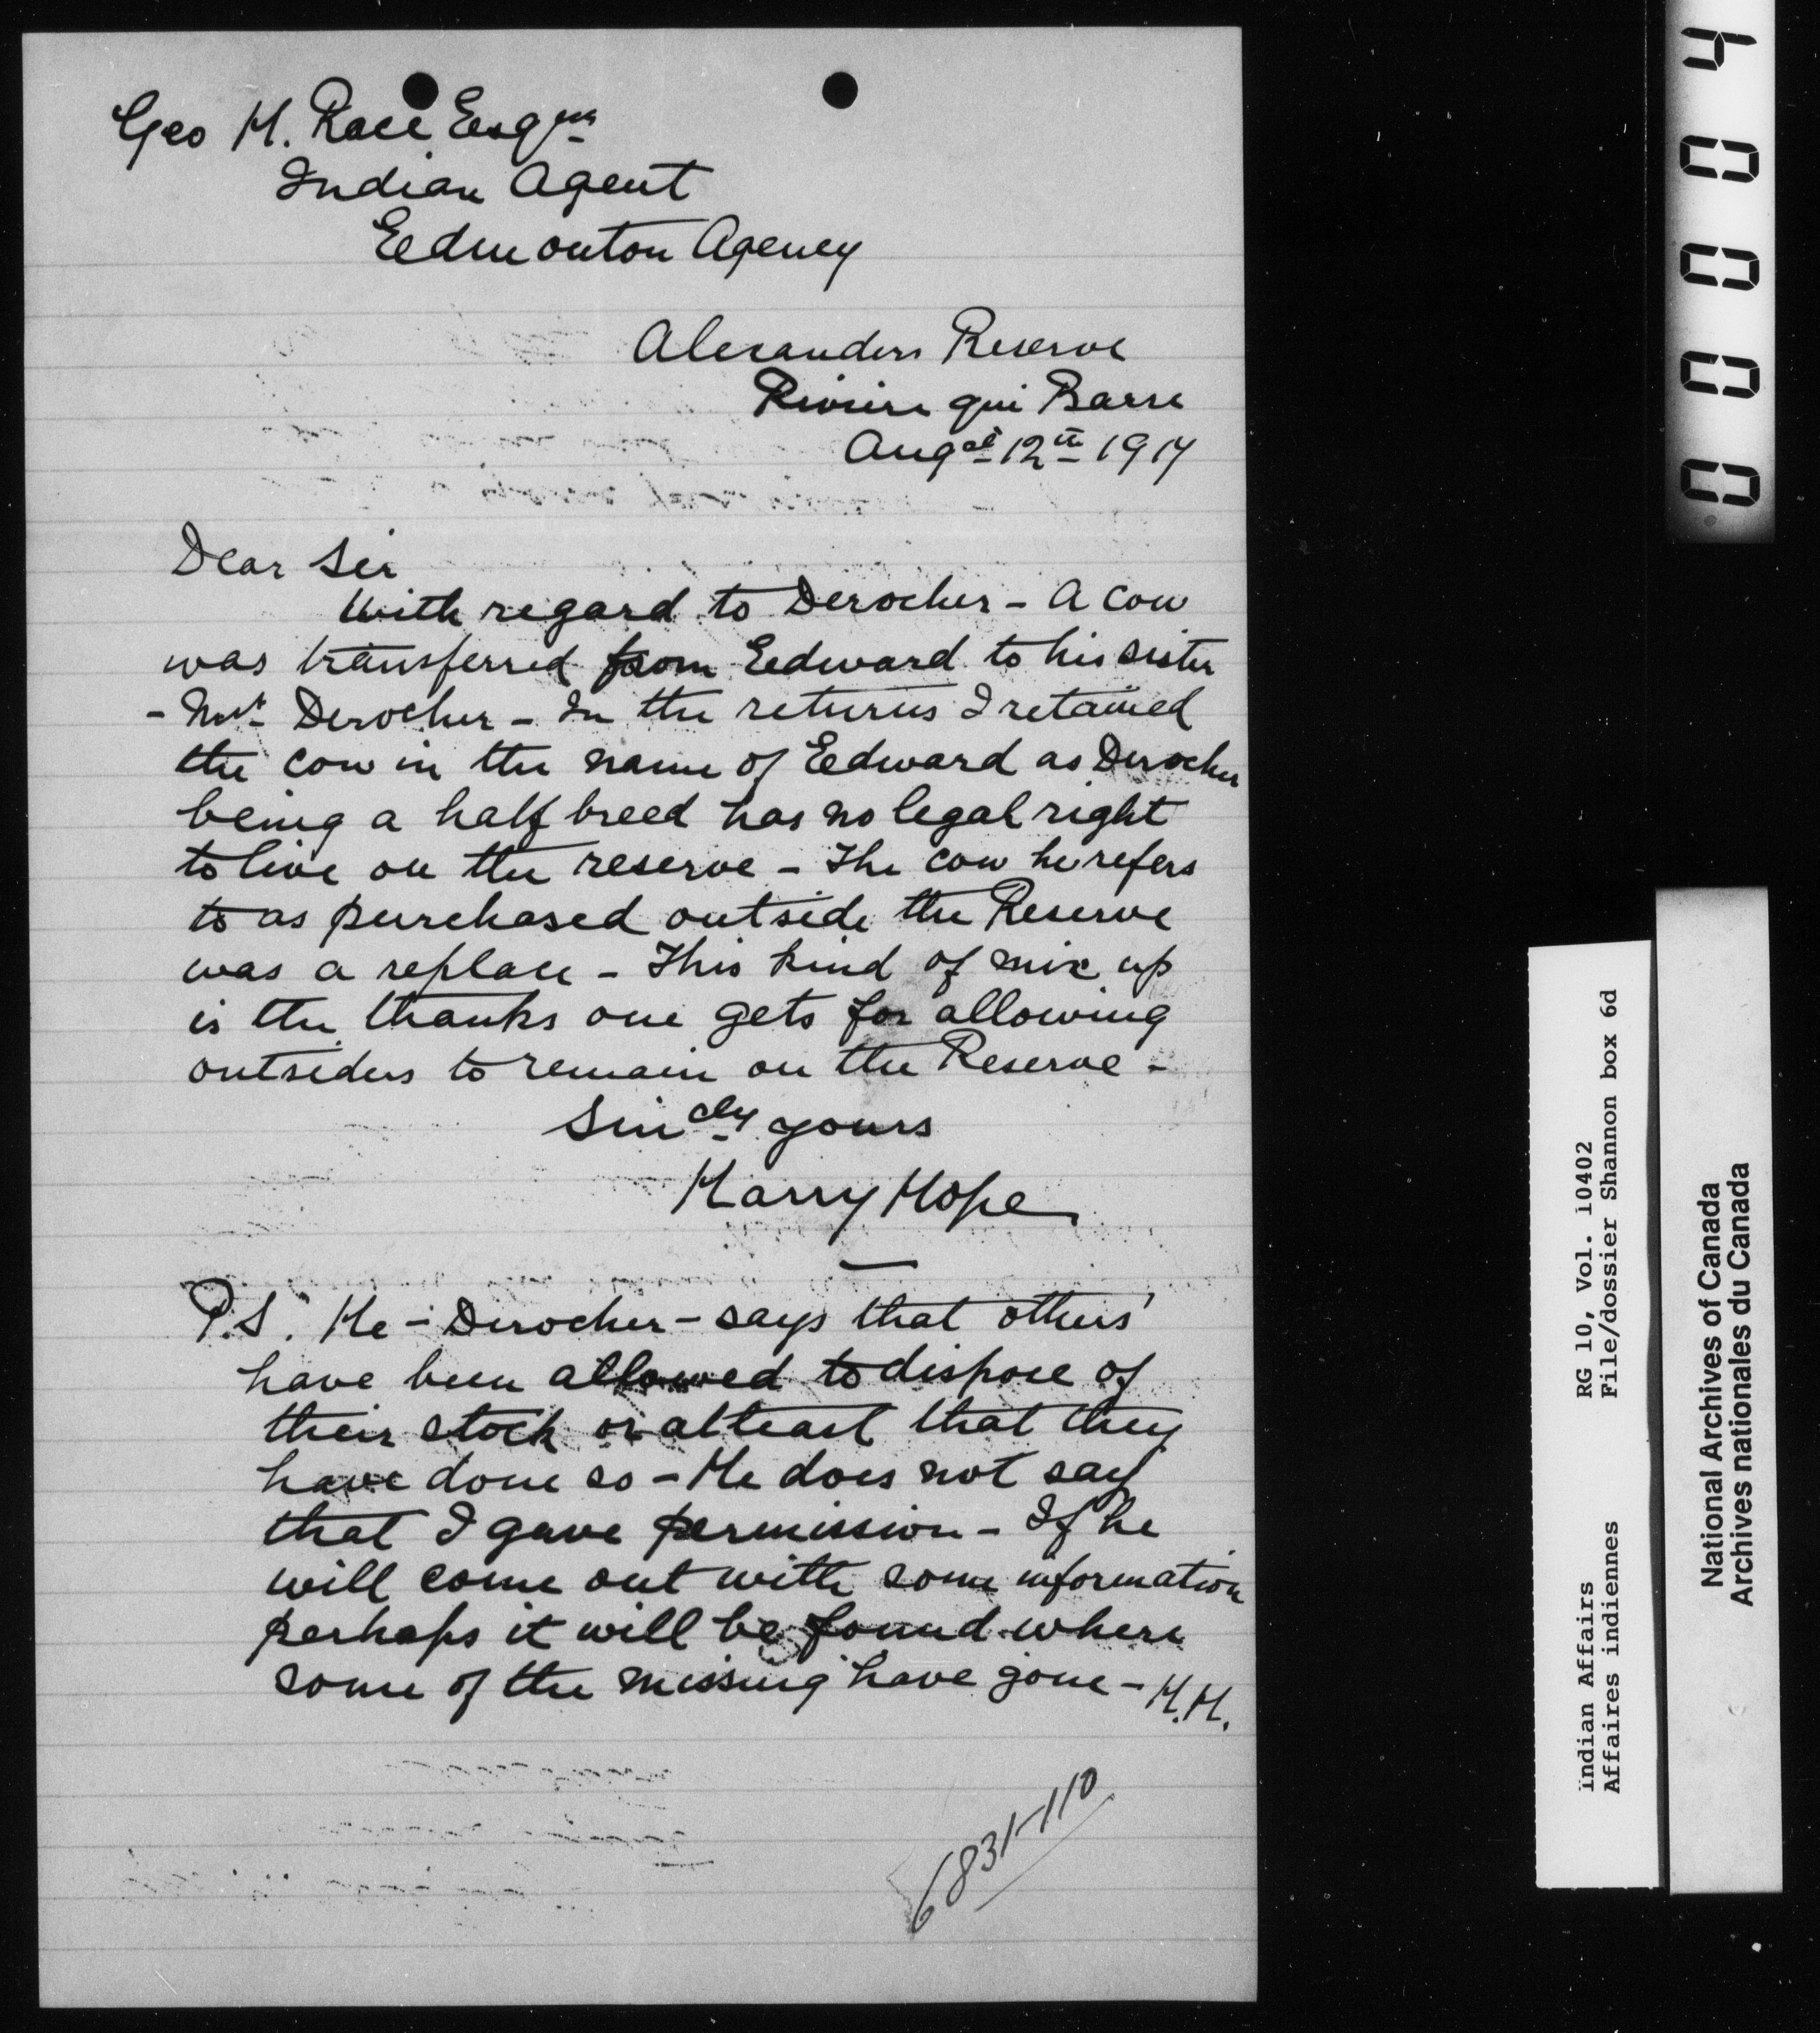 Geo H. Race Esqre
Indian Agent
Edmonton Agency
Alexanders Reserve
Riviere qui Barre
Augst 12th 1917
Dear Sir
With regard to Derocher - A cow
was transferred from Edward to his sister
- Mrs Derocher - In the returns I retained
the cow in the name of Edward as Derocher
being a half breed has no legal right
to live on the reserve - The cow he refers
to as purchased outside the Reserve
was a replace - This kind of mix up
is the thanks one gets for allowing
outsiders to remain on the Reserve -
Sincly yours
Harry Hope
P.S. He - Derocher - says that others'
have been allowed to dispose of
their stock or atleast that they
have done so - He does not say
that I gave permission - If he
will come out with some information
perhaps it will be found where
some of the missing have gone - H.H.
6831-110
00004
Indian Affairs RG 10, Vol. 10402
Affaires indiennes File/dossier Shannon box 6d
National Archives of Canada
Archives nationales du Canada